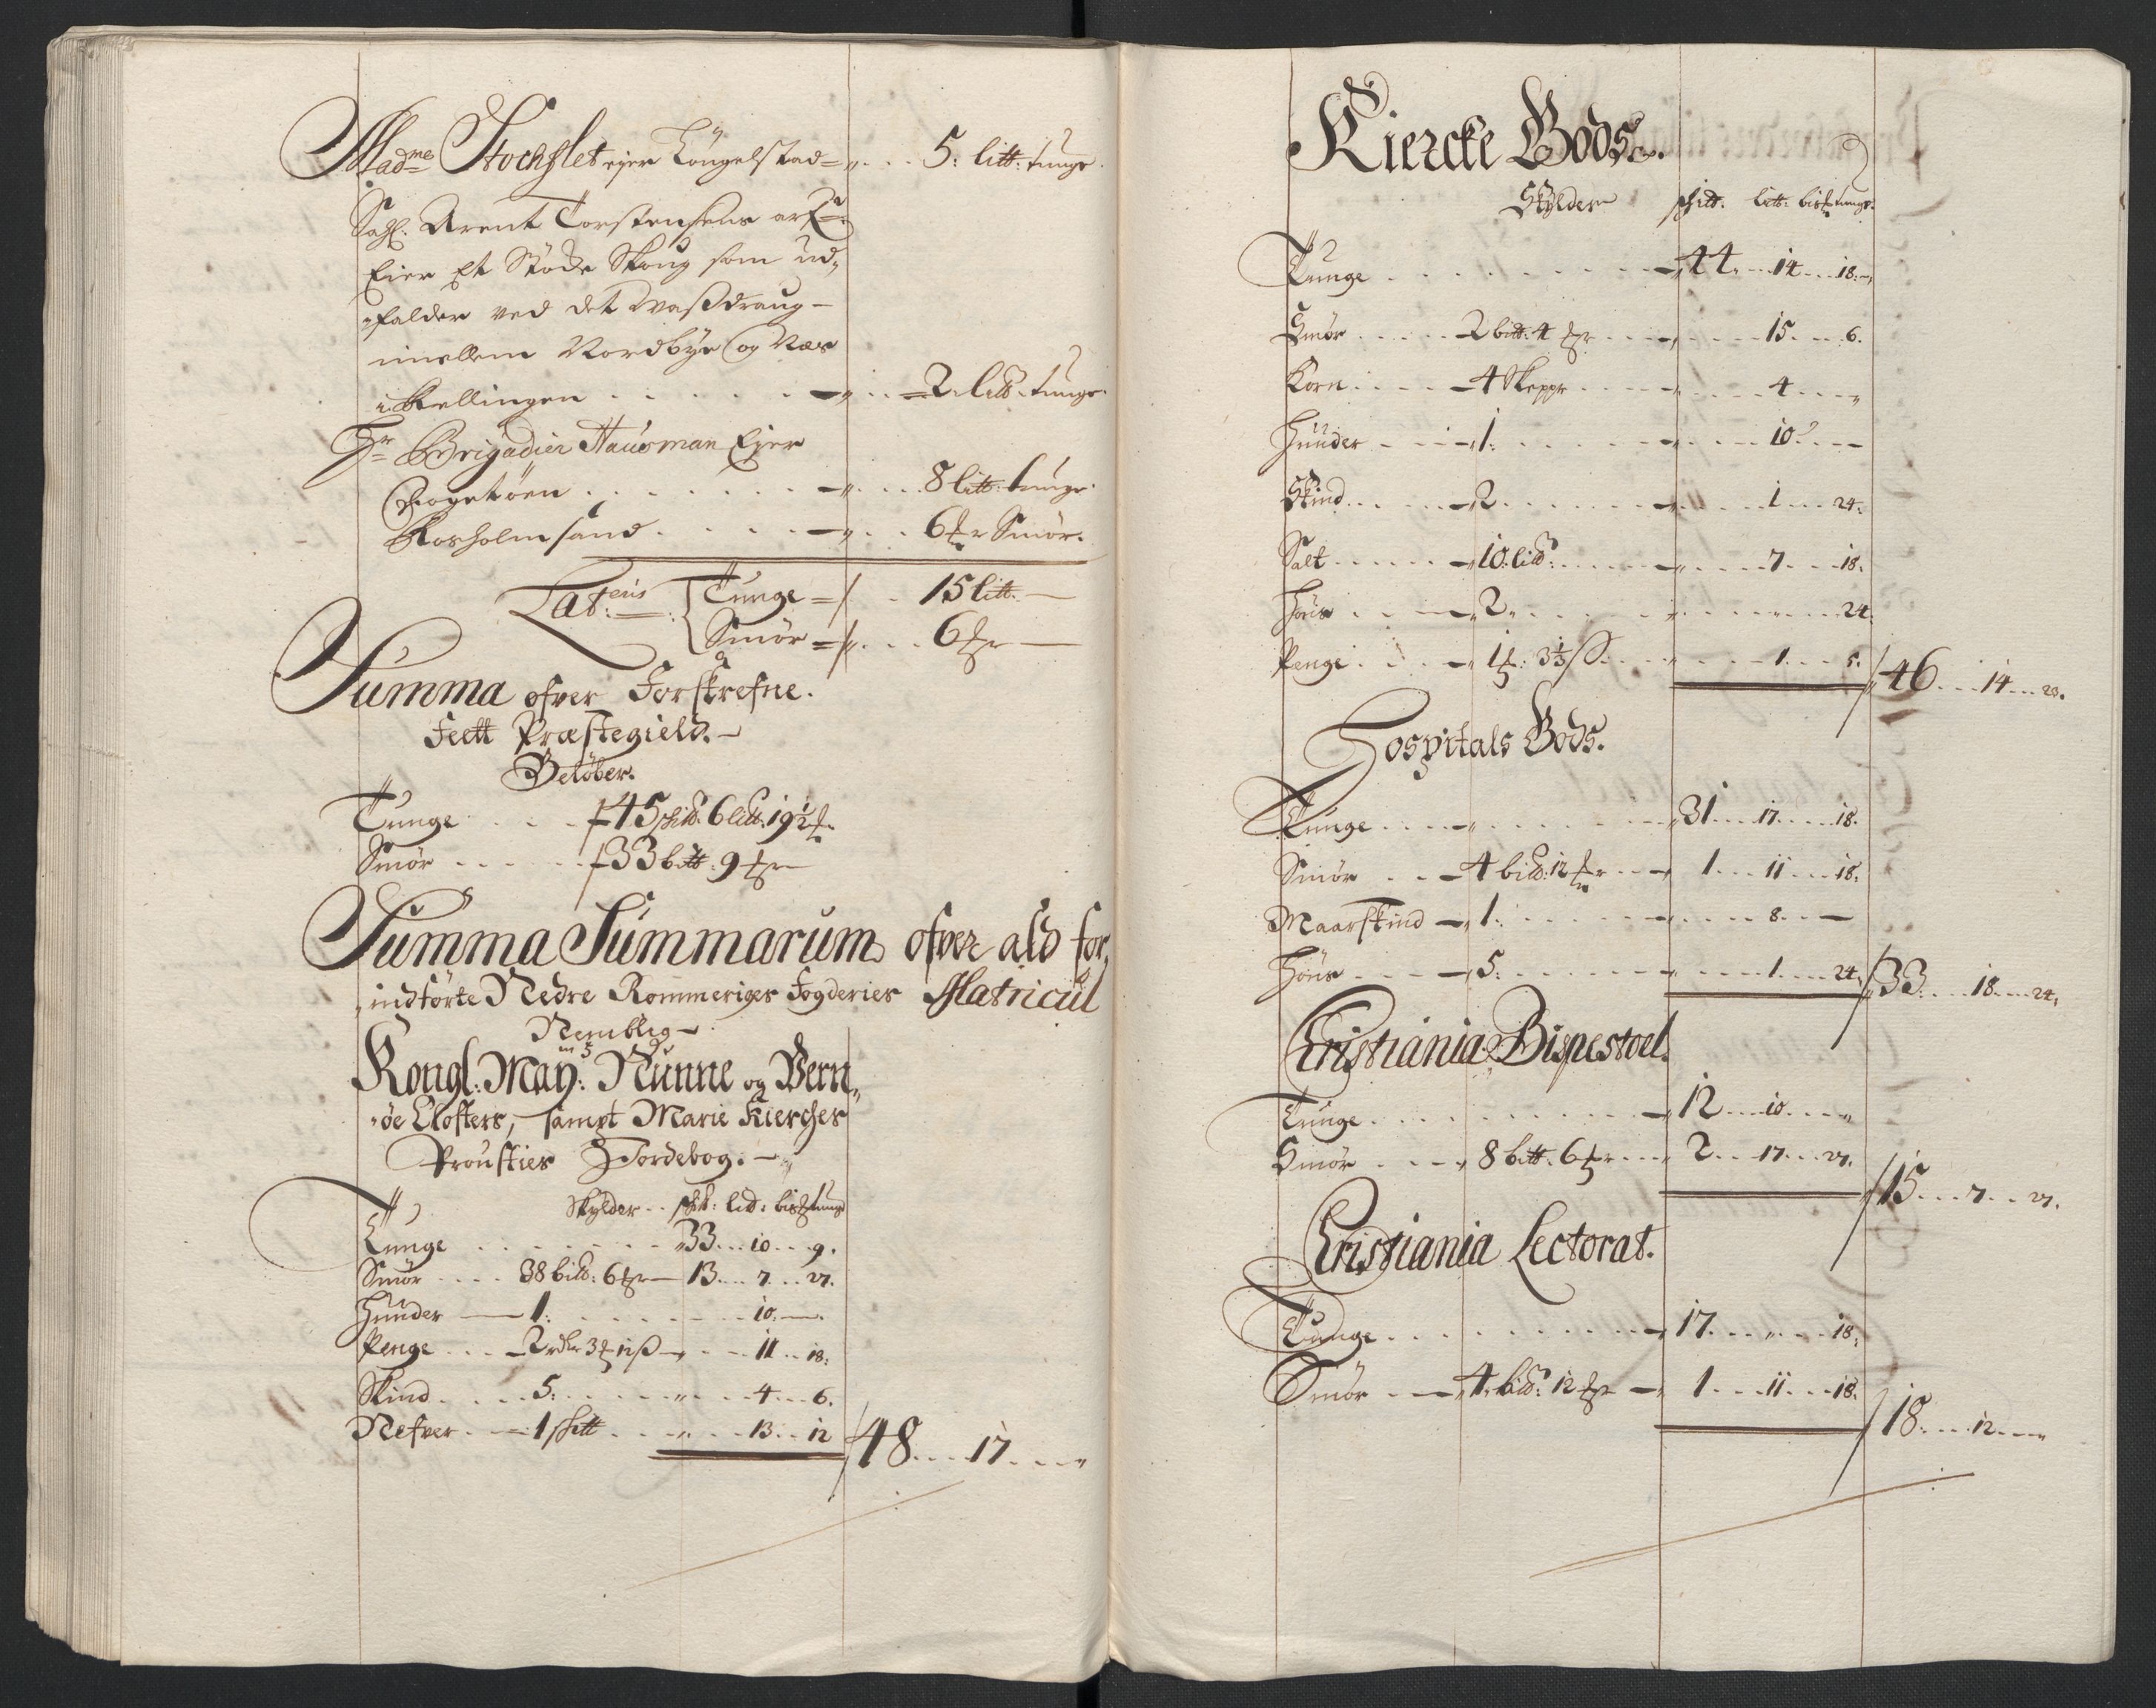 Madme Stochflet ejer Tongelstad = „ . . . 5: litt: tunge.
Sahl. Arent Torstensens arf:
Eier Et Støcke Skoug som ud,
„falder ved det Wasdraug –
imellem Nordbye og Næs
i Kellingen . . . . . „ . . 2 litt: tunge.
Hr Brigadier Hausman Ejer
Fogetøen . . . . . . „ . . . 8 litt: tunge.
Korsholm sand . . . . „ . . 6 mrr Smør.
Lateris: Tunge = . . 15 litt: —
Smør = . . . 6 mrr —
Summa ofver Forskrefne.
Feett Præstegield. –
Beløber.
Tunge . . . 45 skitt: 6 litt: 19½ m.
Smør . . . . 33 bitt: 9 mrr
Summa Summarum ofver ald for,
„indførte Nedre Rommeriges Fogderies Matricul
Nemblig –
Kongl: May: Nunne og Vern,
„øe Closters, sampt Marie Kierches
Prousties Jordebog. –
Skylder . . skit: lid: bismrtunge
Tunge . . . . . „33 . . . 10 . . 9.
Smør . . . . 38 bitt: 6 mrr — 13 . . . 7 . . . 27.
Hunder — 1: . . . . . 10. —
Penge . . . 2 rdlr 3 m 12 s — . . . 11 . . 18:
Skind . . . . 5: . . . . „ . . . 4 . . . 6.
Nefver . . 1 skitt . . . „ . . . 13 . . 12 / 48 . . . 17 . . . „
Kiercke Gods.
Skylder skitt. litt: bismrtunge.
Tunge . . . . . . . „44 . . . 14 . . . 18.
Smør . . . . 2 bitt: 4 mrr . . . . . 15 . . . 6.
Korn . . . . 4 Skeppe . . . . . 4 . . . „
Hunder . . . 1: . . . . . 10 . . —
Skind . . . . 2 . . . . . . 1 . . . 24.
Salt . . . . . 10 lid: . . . . . 7 . . . 18.
Høns . . . . 2 . . . . . „ . . . 24.
Penge . . . . 1 m: 3⅓ s . . . . . 1 . . . 5. / 46 . . . 14 . . . 23.
Hospitals Gods.
Tunge . . . . „ . . . . . „31 . . . 17 . . . 18.
Smør . . . 4 bitt: 12 mrr . . . 1 . . . 11 . . . 18.
Maarskind — 1: . . . . . . 8. . —
Høns . . . . 5: . . . . . . 1 . . . 24. / 33 . . . 18 . . . 24.
Cristiania Bispestoel.
Tunge . . . . . . . . 12 . . . 10 . . . „
Smør . . . . 8 bitt: 6 mrr . . . 2 . . . 17 . . . 27. / 15 . . . 7 . . . 27.
Cristiania Lectorat.
Tunge . . . . . . . . 17 . . . „ . . . 18:
Smør . . . 4 bid: 12 mrr — 1 . . . 11 . . . 18. / 18 . . . 12 . . . „